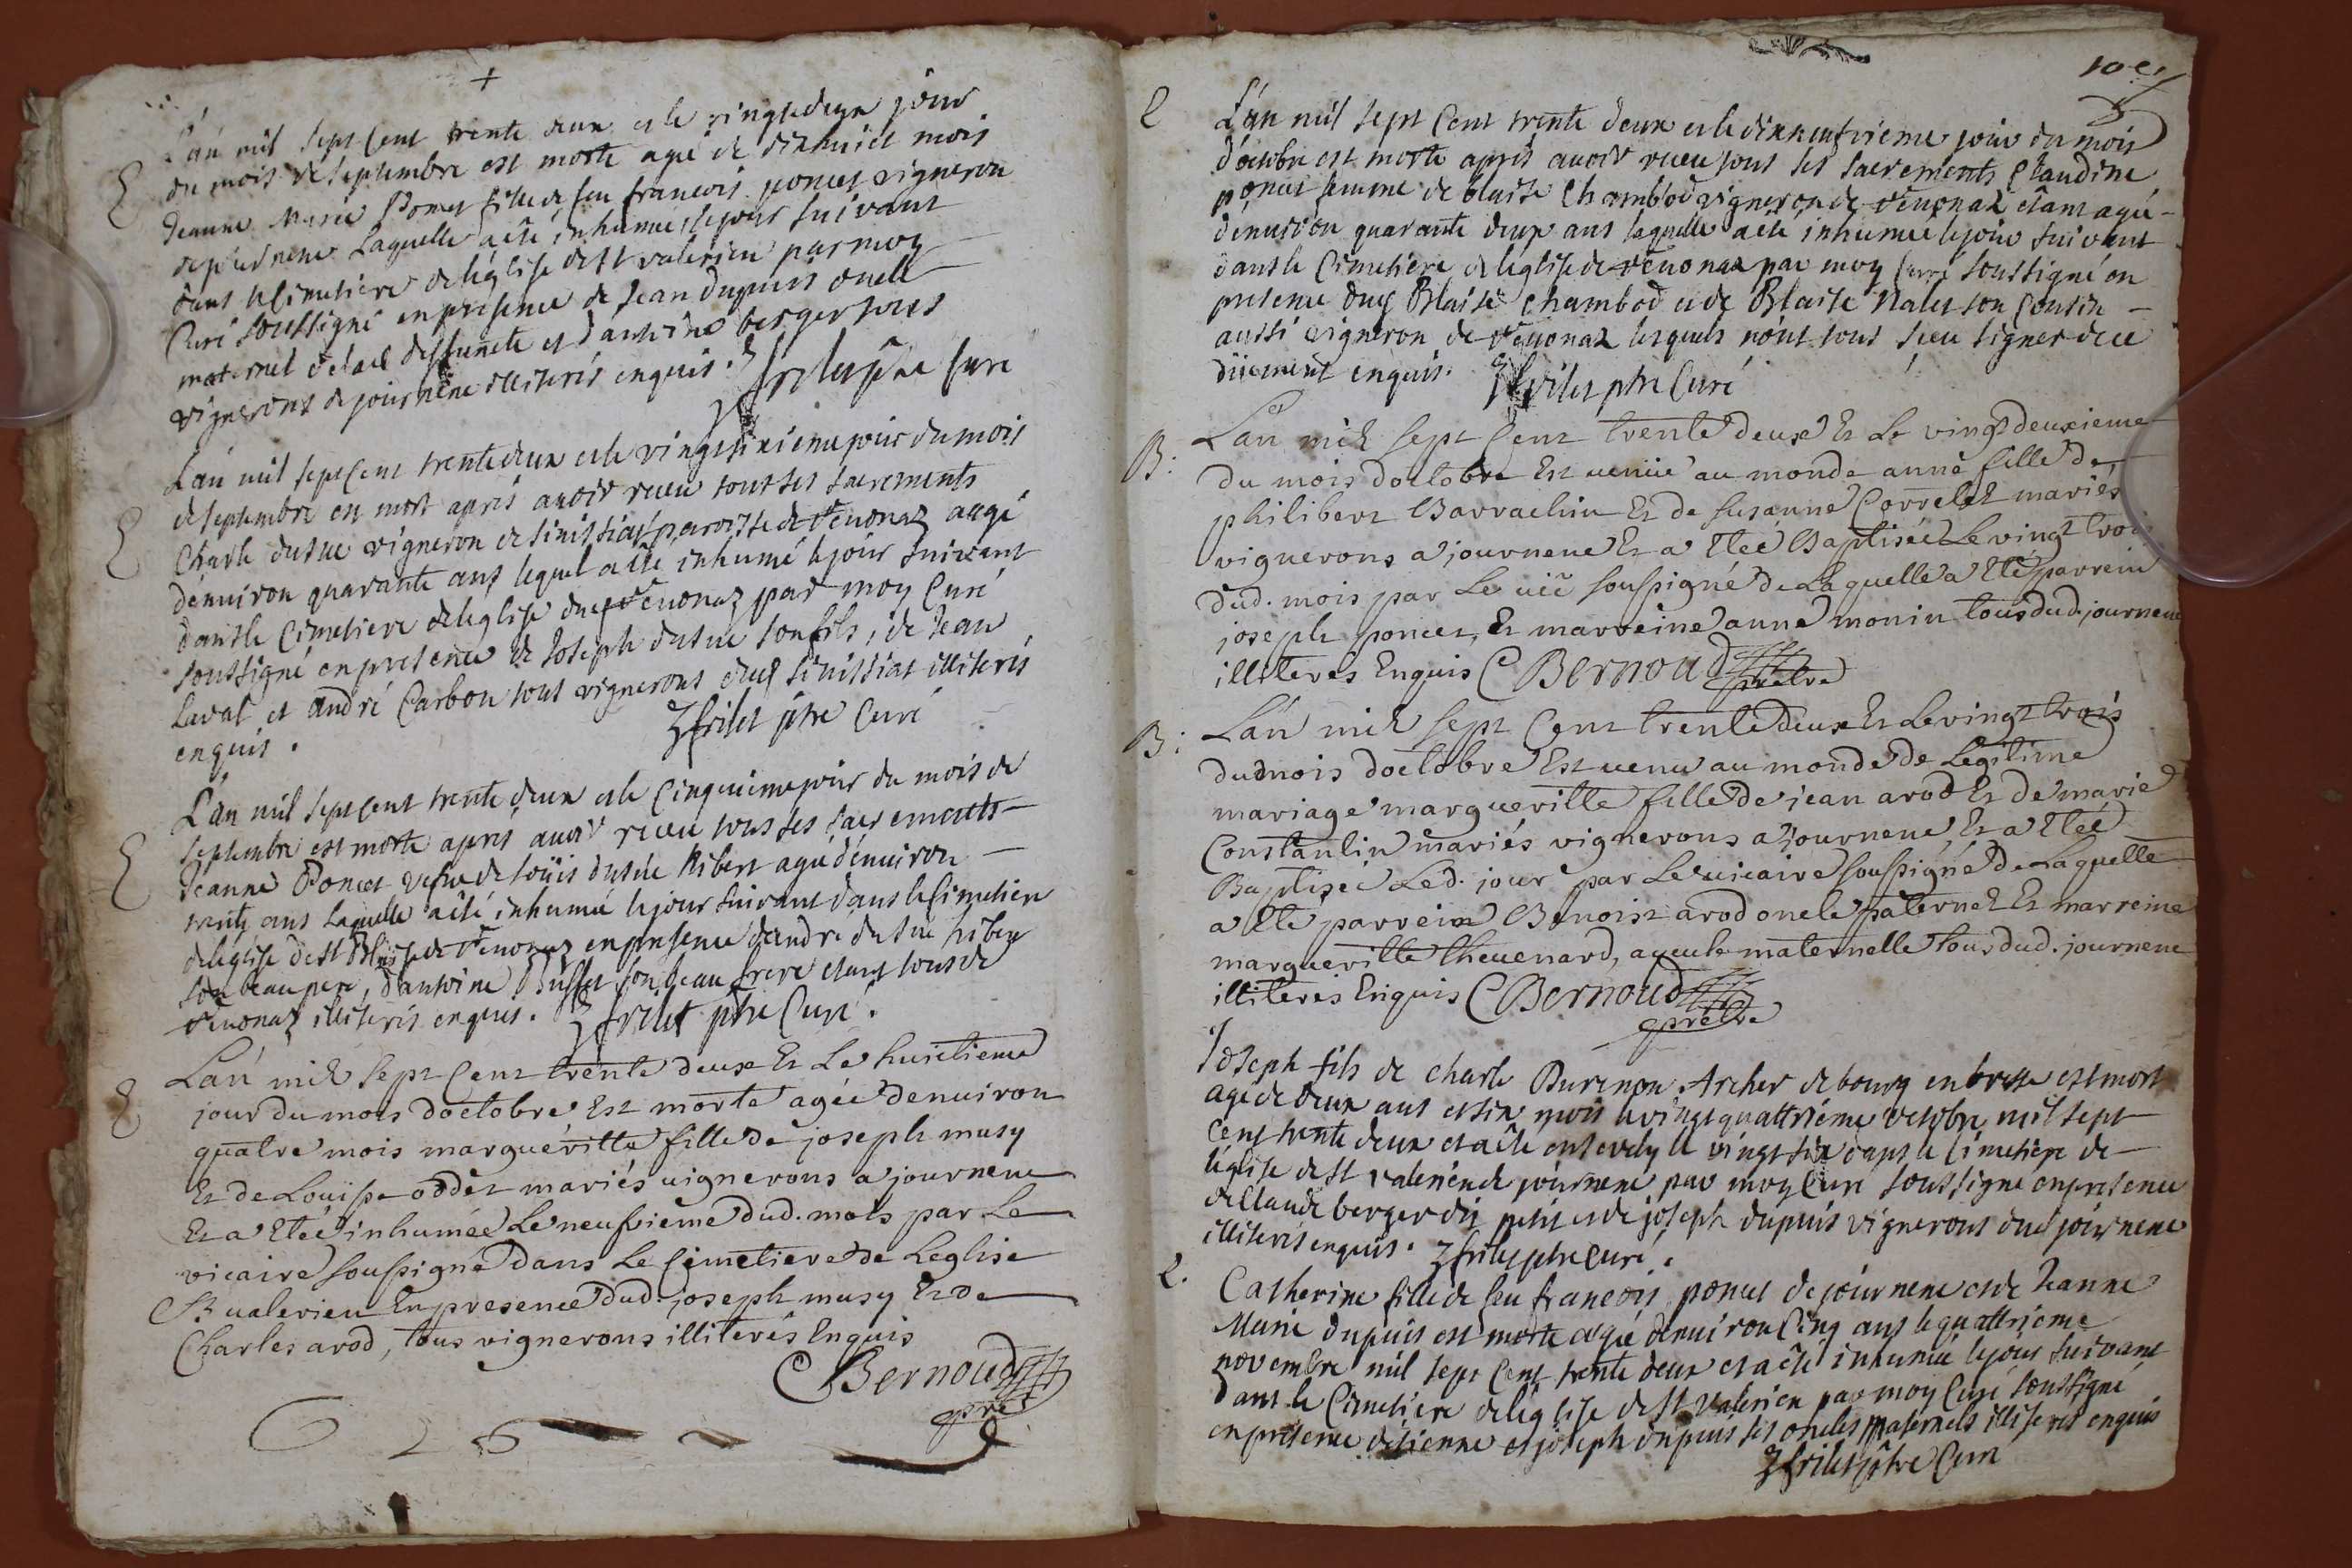 +
L'an mil sept Cent trente deux et le vingtedeux jour
du mois de septembre est morte agée de dixhuict mois
Jeanne Marie Poncet fille de feu francois poncet vigneron
de journene Laquelle a êté inhumée le jour suivant
dans le Cimetiere de léglise de st valerien par moy
Curé soussigné en presence de Jean dupuis oncle
maternel de lad deffuncte et d'antoine berger tous
vignerons de journene illiterés enquis. frilet ptre Curé
L'an mil sept Cent trente deux et le vingtsixieme jour du mois
de septembre est mort aprés avoir receu tous ses sacrements
Charle dusue vigneron de sinissiat paroisse de Revonaz aagé
d'environ quarante ans lequel a êté inhumé le jour suivant
dans le Cimetiere de léglise dud Revonaz par moy Curé
soussigné en presence de Joseph dusue son fils, de Jean
Laval et andré Carbon tous vignerons dud sinissiat illiterés
enquis. frilet ptre Curé
L'an mil sept Cent trente deux et le Cinquiême jour du mois de
septembre est morte aprés avoir receu tous ses sacrements
Jeanne Poncet vefve de Loüis dusue hibert agée d'environ
trente ans Laquelle a êté inhumée le jour suivant dans le Cimetiere
de léglise de st Blaise de Revonaz en presence d'andré dusue hibert
son beau pere, d'antoine Buffet son beau frere etant tous de
Revonaz illiterés enquis. frilet ptre Curé.
L'an mil sept Cent trente deux Et Le huictieme
jour du mois doctobre Est morte agée denviron
quatre mois margueritte fille de joseph musy
Et de Louise oddet mariés vignerons a journene
Et a Etée inhumée Le neufvieme dud. mois par Le
vicaire soussigné dans Le Cimetiere de Leglise
St valerien En presence dud. joseph musy Et de
Charles arod, tous vignerons illiterés Enquis
C Bernoud
pretre
10e
L'an mil sept Cent trente deux et le dixneufvieme jour du mois
d'octobre est morte aprés avoir receu tous ses sacrements Claudine
poncet femme de blaise Chambod vigneron de Revonaz étant agée
d'environ quarante deux ans laquelle a êté inhumée le jour suivant
dans le Cimetiere de léglise de Revonaz par moy Curé soussigné en
presence dud Blaise Chambod et de Blaise Nalet son Cousin
aussi vigneron de Revonaz lesquels n'ont tous sceu signer de ce
düement enquis. frilet ptre Curé
B: L'an mil sept Cent trente deux Et Le vingt deuxieme
du mois doctobre Est venüe au monde anne fille de
philibert Barrachin Et de susanne Correlet mariés
vignerons a journene Et a Etée Baptisée Le vingt trois
dud. mois par Le vic soussigné de Laquelle a Eté parrein
joseph poncet, Et marreine anne monin tous dud. journene
illiterés Enquis C Bernoud
pretre
B: L'an mil sept Cent trente deux Et Le vingt trois
du mois doctobre Est venue au monde de Legitime
mariage margueritte fille de jean arod Et de marie
Constantin mariés vignerons a journene, Et a Etée
Baptisée Led. jour par Le vicaire soussigné de Laquelle
a Eté parrein Benoist arod oncle paternel Et marreine
margueritte thevenard, ayeule maternelle tous dud. journene
illiterés Enquis C Bernoud
pretre
Joseph fils de charle Burenon Archer de bourg en bresse est mort
agé de deux ans et six mois le vingtquattriéme octobre mil sept
Cent trente deux et a êté ensevely le vingt six dans le Cimetiere de
léglise de st valerien de journene par moy Curé soussigné en presence
de Claude berger dit petit et de joseph dupuis vignerons dud journene
illiterés enquis. frilet ptre Curé.
Catherine fille de feu francois poncet de journene et de Jeanne
Marie dupuis est morte agée d'environ Cinq ans le quattrieme
novembre mil sept Cent trente deux et a êté inhumée le jour suivant
dans le Cimetiere de léglise de st valerien par moy Curé soussigné
en presence d'étienne et joseph dupuis ses oncles maternels illiterés enquis
frilet ptre Curé